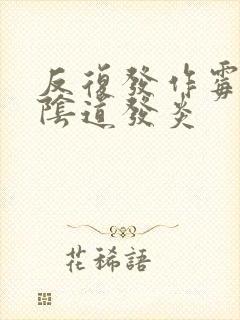 反復發作霉
陰道發炎
花稀語